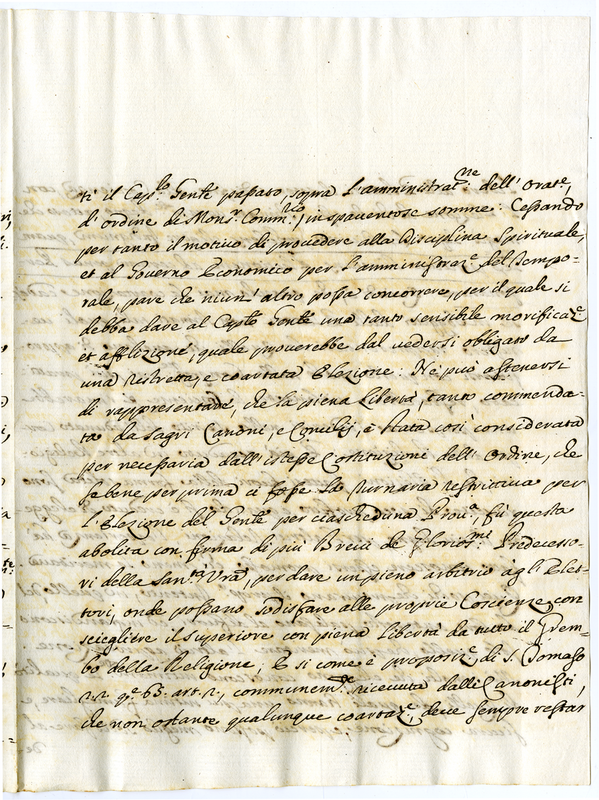 ti il Cap.lo Gen.le passato, sopra l'amministrat.ne dell' Orat.e,
d'ordine di Mons.r Comm.rio, in spaventose somme: Cessando
per tanto il motivo di provedere alla Disciplina Spirituale,
et al Governo Economico per l'amministraz.e del Tempo-
rale, pare che niun' altro possa concorrere, per il quale si
debba dare al Cap.lo Gen.le una tanto sensibile morificaz.e
et afflizione, quale proverebbe dal vedersi obligato da
una ristretta, e coartata Elezione: Ne può astenersi
di rappresentare, che la piena libertà, tanto commenda-
ta da Sagri Canoni, e Concilij, è stata così considerata
per necessaria dall'istesse Costituzioni dell' Ordine, che
se bene per prima ci fosse la turnaria restrittiva per
l'Elezione del Gen.le per ciascheduna Prov.a, fù questa
abolita con firma di più Brevi de Glorios.mi Predecesso-
ri della San.tà V.ra, per dare un pieno arbitrio agli Elet-
tori, onde possano sodisfare alle proprie Coscienze con
scieglere il Superiore con piena libertà da tutto il Grem-
bo della Religione, E si come è proposiz.e di S. Tomaso
2.2. q.e 63. art. 2., communem.te ricevuta dalli Canonisti,
che non ostante qualunque coartaz.e, deve sempre restar